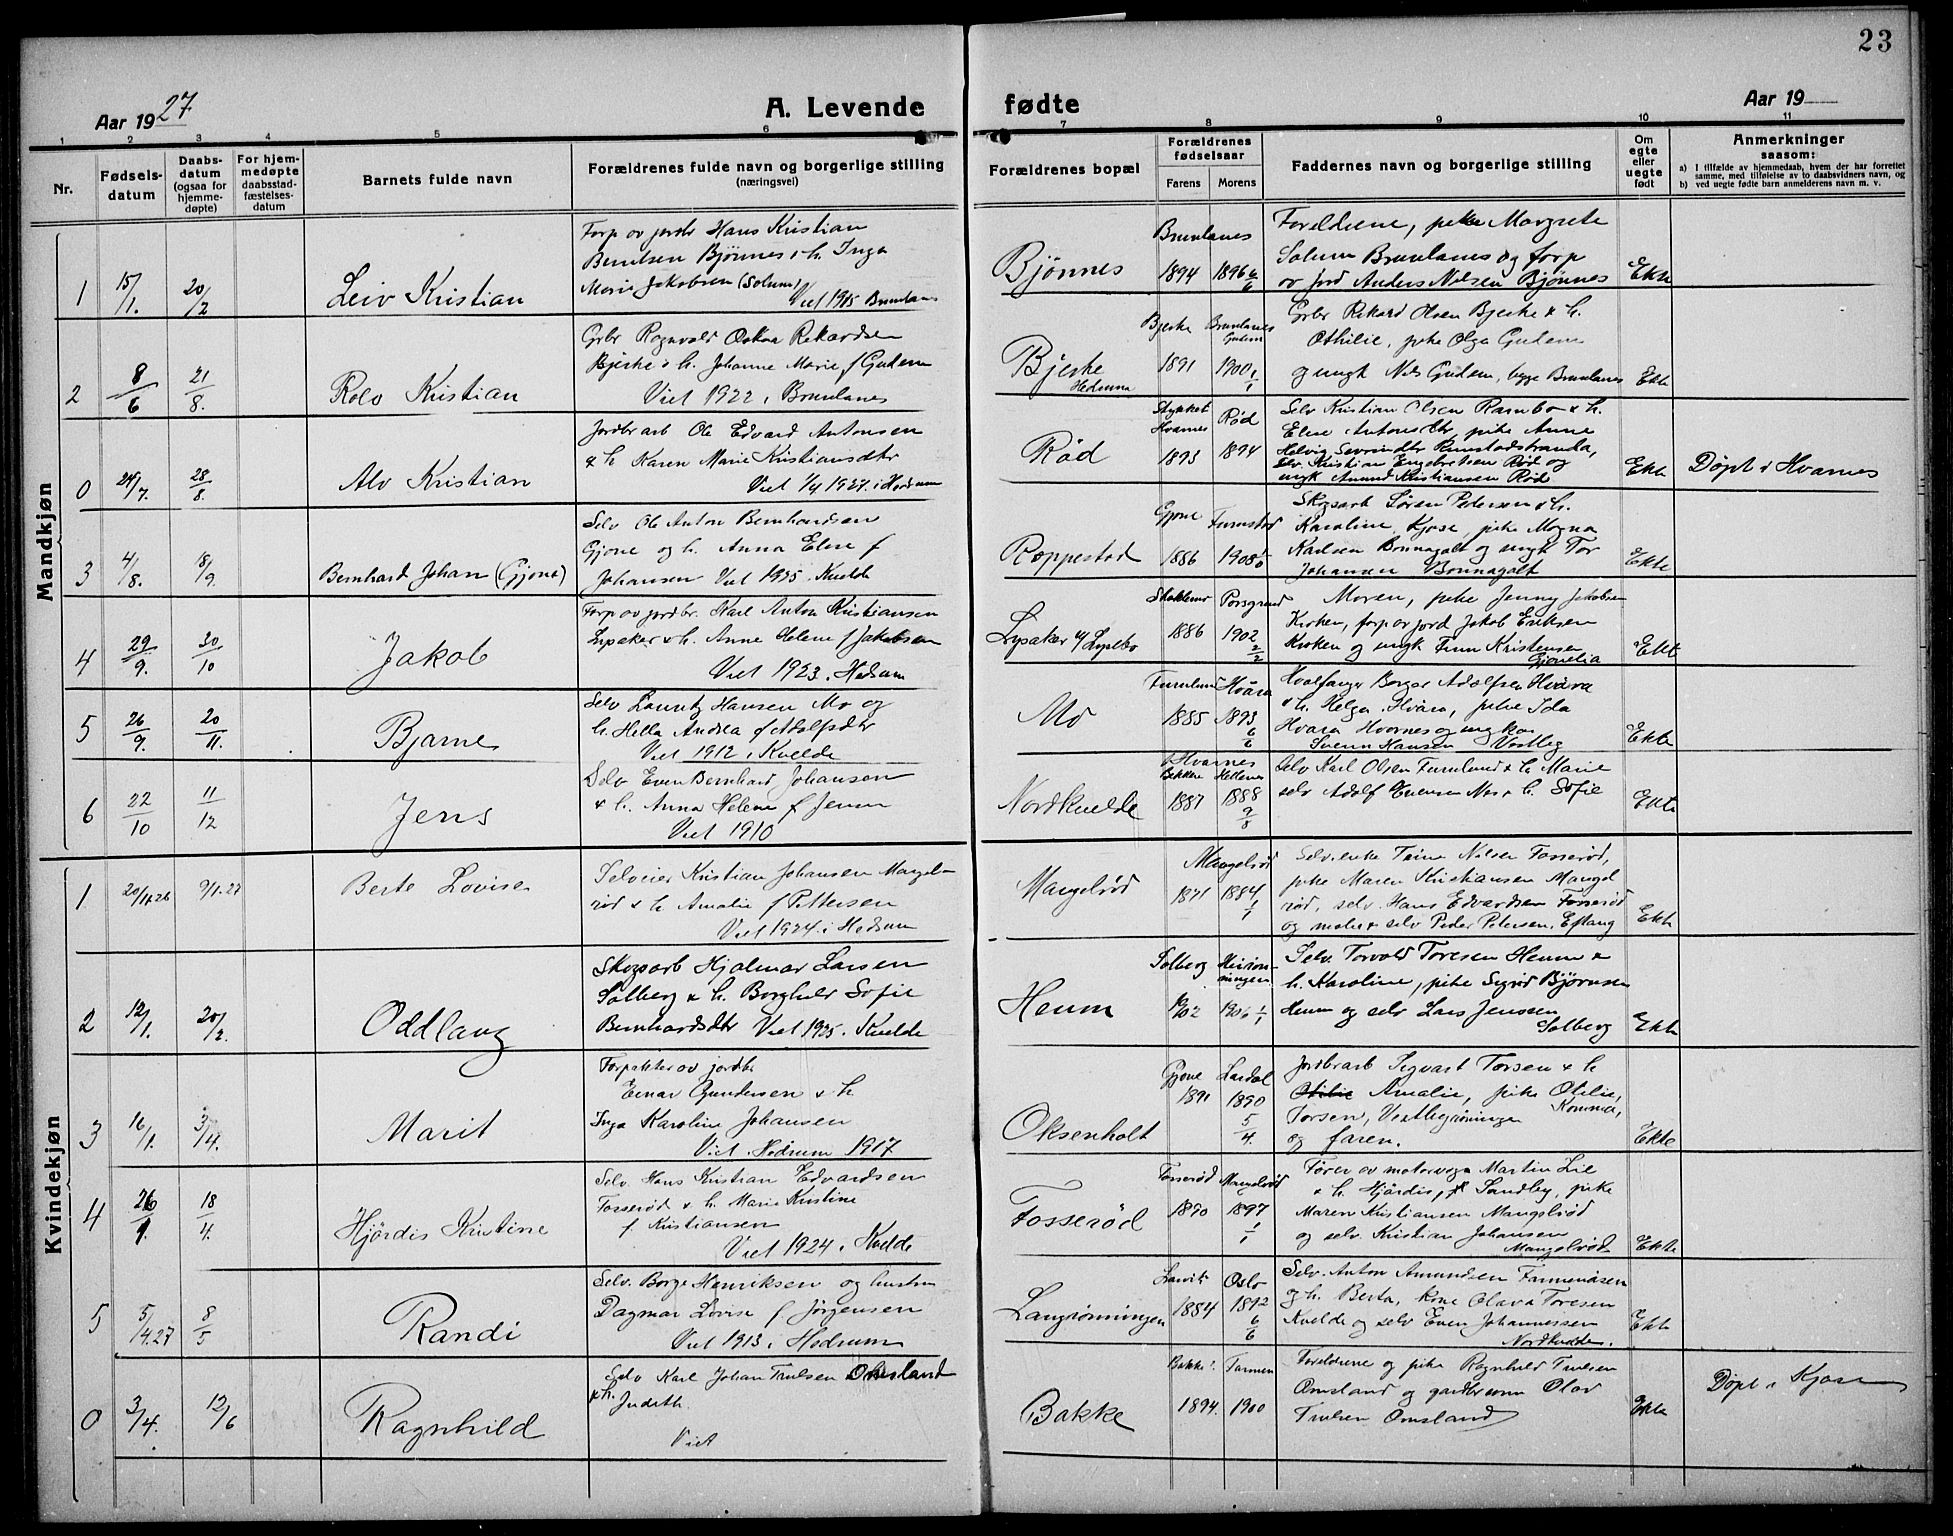 23
Aar 1927
A. Levende fødte
Aar 19
1 2 3 4 5 6 7 8 9 10 11
Nr.
Fødsels-
datum
Daabs-
datum
(ogsaa for
hjemme-
døpte)
For hjem-
medøpte
daabsstad-
fæstelses-
datum
Barnets fulde navn
Forældrenes fulde navn og borgerlige stilling
(næringsvei)
Forældrenes bopæl
Forældrenes
fødselsaar
Farens Morens
Faddernes navn og borgerlige stilling
Om
egte
eller
uegte
født
Anmerkninger
saasom:
a) I tilfælde av hjemmedaab, hvem der har forrettet
samme, med tilføielse av to daabsvidners navn, og
b) ved uegte fødte barn anmelderens navn m. v.
Mandkjøn
1 15/1. 20/2 Leiv Kristian
Forp ov jordbr Hans Kristian
Berntsen Bjønnes & h. Inga
Marie Jakobsen (Solum)
Viet 1915 Brunlanes
Bjønnes
Brunlanes
1894 1896 6/6
Foreldrene, pike Margrete
Solum Brunlanes og forp
ov jord Anders Nilsen Bjønnes
Ekte
2 8/6 21/8. Rolv Kristian
Grbr Ragnvald Oskar Rikardsen
Bjerke & h. Johanne Marie f Gudem
Viet 1922 i Brunlanes
Bjerke
Hedrum
Bjerke Brunlanes
Gudem
1891 1900 1/1
Grbr Rikard Olsen Bjerke & h.
Othilie, pike Olga Gudem
og ungk Nils Gudem, begge Brunlanes
Ekte
0 24/7. 28/8. Alv Kristian
Jordbrarb Ole Edvard Antonsen
& h Karen Marie Kristiansdtr
Viet 1/4 1927 i Hedrum
Rød
Hvarnes Rød
1893 1894
Selv Kristian Olsen Rambo & h.
Elise Antonsdtr pike Anne
Helvig
selv. Kristian Engebretsen Rød og
ungk Amund Kristiansen Rød
Ekte
Døpt i Hvarnes
3 4/8. 18/9. Bernhard Johan (Gjone)
Selv Ole Anton Bernhardsen
Gjone og h. Anna Elise f
Johansen Viet 1925. Kvelde
Ræppestad
Gjone
1886 1908
Skogsarb Søren Pedersen & h.
Karoline Kjose, pike Magna
Karlsen Bonnagolt og ungk Tor
Johansen Bonnagolt
Ekte
4 29/9. 30/10 Jakob
Forp ov jordbr. Karl Anton Kristiansen
Lysaker & h. Anne Helene f Jakobsen
Viet 1923 i Hedrum
Lysaker
Porsgrund
1886 1902 2/2
Moren, pike Jenny Jakobsen
Kirken, forp ov jord Jakob Eriksen
Kirken og ungk Finn Kristensen
Gjonelia
Ekte
5 26/9. 20/11. Bjarne
Selv Lauritz Hansen Mo og
h. Hella Andrea f Adolfsdtr
Viet 1912 i Kvelde
Mo
Furulund Hvåra
1885 1893 6/6
Hvalfanger Borger Adolfsen Hvåra
& h. Helga Hvåra, pike Ida
Hvara Hvarnes og ungkar
Svenn Hansen Vestleg
Ekte
6 22/10 11/12 Jens
Selv Even Bernhard Johansen
& h. Anna Helene f Jensen
Viet 1910
Nordkvelde
Hvarnes
1887 1888 9/8
Selv Karl Olsen Furulund & h Marie
selv Adolf Evensen Nes & h. Sofie
Ekte
Kvindekjøn
1 20/11.26 9/1.27 Berte Lovise
Selveier Kristian Johansen Mangel-
rød & h Amalie f Pettersen
Viet 1924 i Hedrum
Mangelrød
Mangelrød
1871 1884 1/1
Selv.enke Trine Nilsen Fosserød,
pike Maren Kristiansen Mangel
rød, selv. Hans Edvardsen Fosserød
og maler & selv Peder Petersen, Eftang
Ekte
2 12/1. 20/2. Oddlaug
Skogsarb Hjalmar Larsen
Solberg & h. Borghild Sofie
Bernhardsdtr Viet 1925. Kvelde
Heum
Solberg
1902 1906 1/1
Selv. Torvald Toresen Heum &
h. Karoline, pike Sigrid Bjørnsen
Heum og selv Lars Jenssen
Solberg
Ekte
3 16/1. 3/4. Marit
Forpakter ov jordbr
Einar Gundersen & h
Inga Karoline Johansen
Viet i Hedrum 1917
Oksenholt
Gjone Lardal
1891 1890 5/4.
Jordbrarb Sigvart Torsen & h
Otilie Amalie, pike Otilie,
Torsen, Vestlegrøningen
og faren.
Ekte
4 26/1. 18/4. Hjørdis Kristine
Selv. Hans Kristian Edvardsen
Fosserød & h. Marie Kristine
f Kristiansen
Viet 1924 i Kvelde
Fosserød
Fosserød Mangelrød
1890 1897 1/1
Fører av motorvogn Martin Lie
& h. Hjördis, f Sandby, pike
Maren Kristiansen Mangelrød
og selv. Kristian Johansen
Mangelrød
Ekte
5 5/4.27 8/5 Randi
Selv. Borge Henriksen og hustru
Dagmar Lovise f. Jørgensen
Viet 1913 i Hedrum
Langrønningen
Larvik Oslo
1884 1892 6/6
Selv. Anton Amundsen Farmenåsen
og h. Berta, kone Olava Toresen
Kvelde og selv Even Johannessen
Nordkvelde.
Ekte
0 3/4. 12/6 Ragnhild
Selv Karl Johan Trulsen Omsland
& h. Judith.
Viet
Bakke
Bakke Farmen
1894. 1900
Foreldrene og pike Ragnhild Trulsen
Omsland og gardbr sønn Olav
Trulsen Omsland
Ekte
Døpt i Kjose